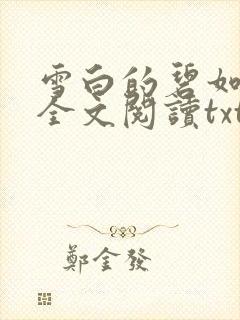 雪白的碧如
全文閱讀txt
鄭金發